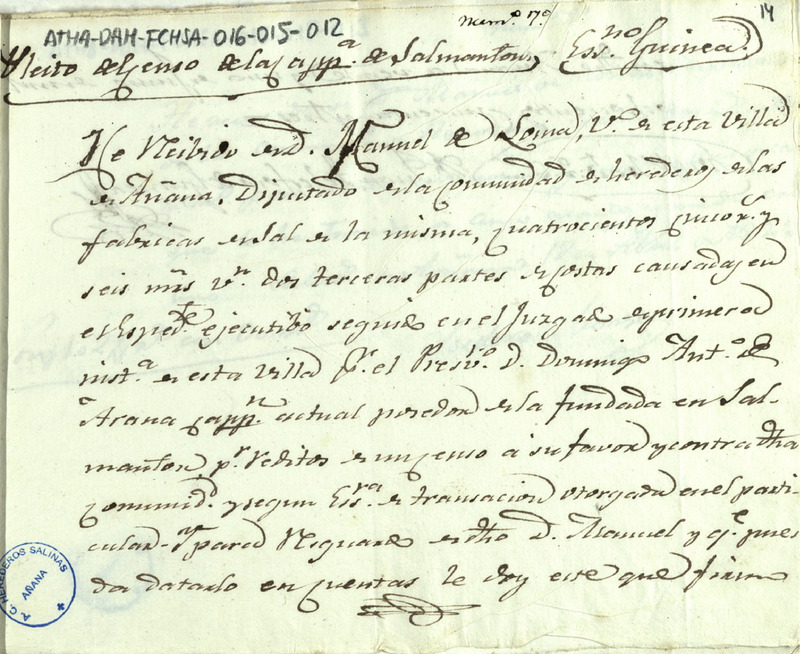 ATHA-DAH-FCHSA-016-015-012
Num.º 17º
14
Pleito del Censo de la capp.ª de Salmanton, Ess.no Guinea.
He recibido de D. Manuel de Loma, v.º de esta villa
de Añana, Diputado de la comunidad de herederos de las
fabricas de sal de la misma, quatrocientos y
seis mrs v.n dos terceras partes de costas causadas en
el Esped.te ejecutibo seguido en el Juzgado de primera
inst.ª de esta villa p.r el Presb.º D. Domingo Ant.º de
Arana capp.n actual poseedor de la fundada en Sal-
manton, p.r reditos de un censo á su favor y contra dha
comunid.d y segun Ess.ra de transacion otorgada en el parti-
cular. Y para resguardo de dho D. Manuel y q.e pue-
da datarlo en cuentas le doy este que firmo
A.C. HEREDEROS SALINAS
AÑANA